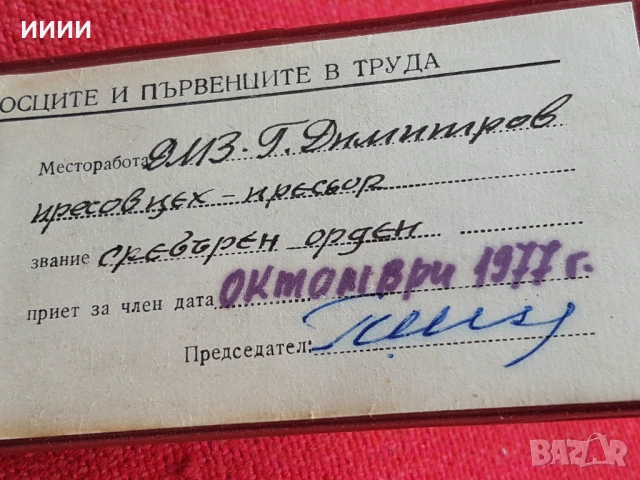 ииии
ОСЦИТЕ И ПЪРВЕНЦИТЕ В ТРУДА
Месторабота ДМЗ-Г. Димитров
пресов цех - пресьор
звание сребърен орден
приет за член дата ОКТОМВРИ 1977 г.
Председател:
BAZAR